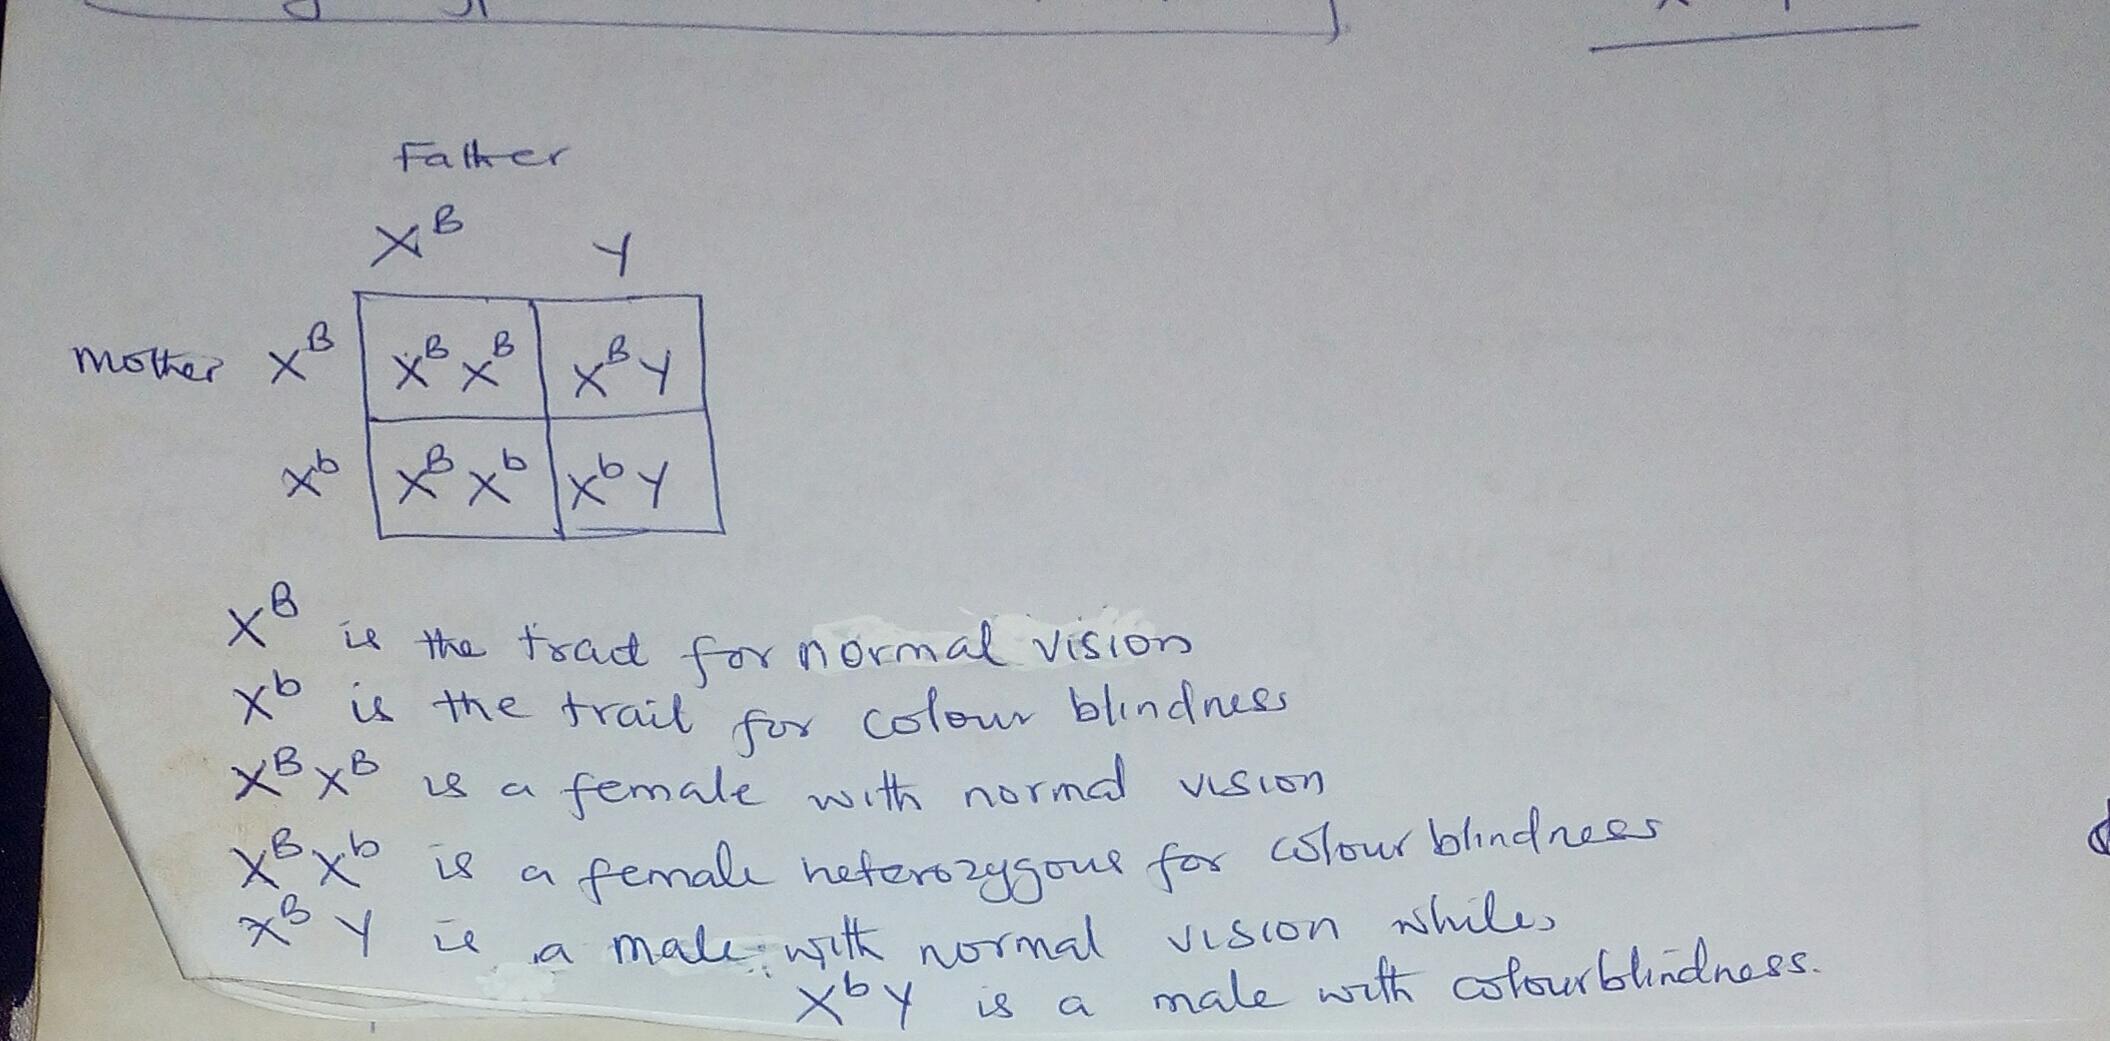 Father
X^B Y
Mother X^B X^B X^B X^B Y
X^b X^B X^b X^b Y
X^B is the trait for normal vision
X^b is the trait for colour blindness
X^B X^B is a female with normal vision
X^B X^b is a female heterozygous for colour blindness
X^B Y is a male with normal vision while
X^b Y is a male with colourblindness.